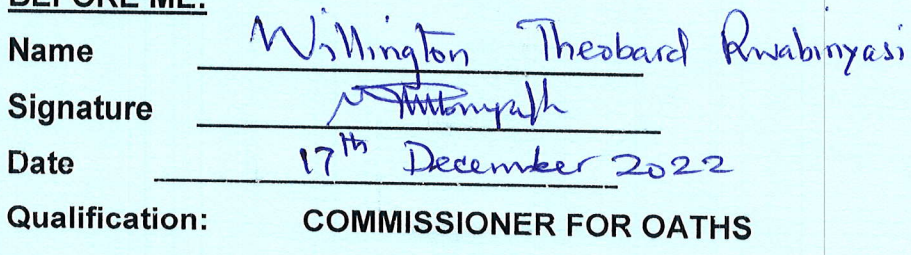 BEFORE ME:
Name Willington Theobard Rwabinyasi
Signature
Date 17th December 2022
Qualification: COMMISSIONER FOR OATHS